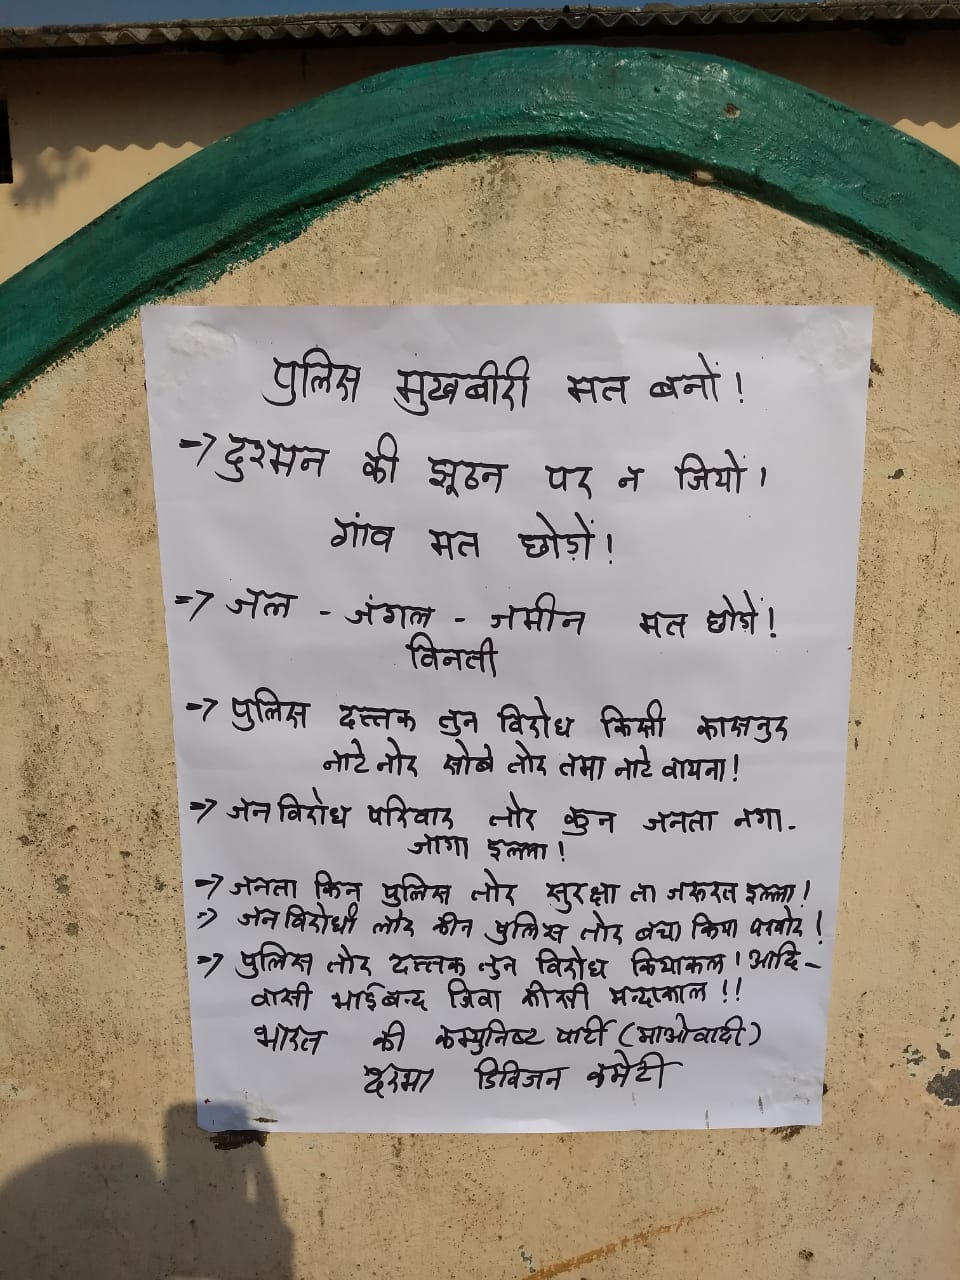 पुलिस मुखबीरी मत बनों!
=> दुश्मन की झूठन पर न जियों।
गांव मत छोड़ों!
=> जल - जंगल - जमीन मत छोड़ें!
विनती
=> पुलिस दत्तक तुन विरोध किसी कासनुर
नाटे नोर सोबे तोर तमा नाटे वायना!
=> जन विरोध परिवार तोर कुन जनता नगा-
जागा इल्ला!
=> जनता किन पुलिस तोर सुरक्षा ता जरूरत इल्ला!
=> जन विरोधी लोर कीन पुलिस तोर बचा किया परवोर!
=> पुलिस तोर दत्तक तुन विरोध कियाकल। आदि-
वासी भाईबन्द जिवा कीसी मन्दाकाल!!
भारत की कम्युनिष्ट पार्टी (माओवादी)
दरभा डिविजन कमेटी